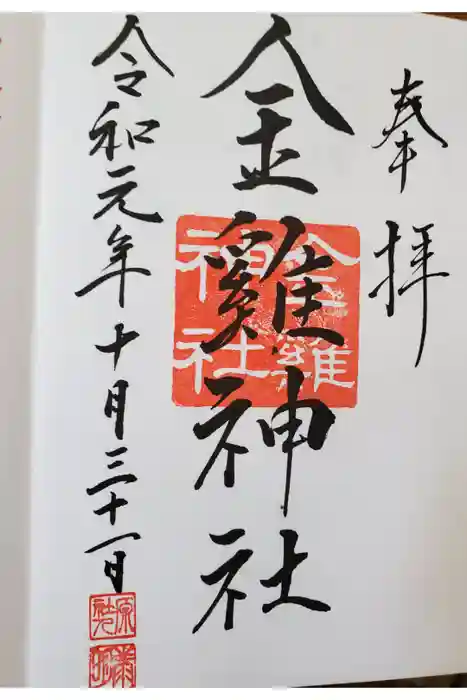 奉拝
金雞神社
金雞神社
令和元年十月三十一日